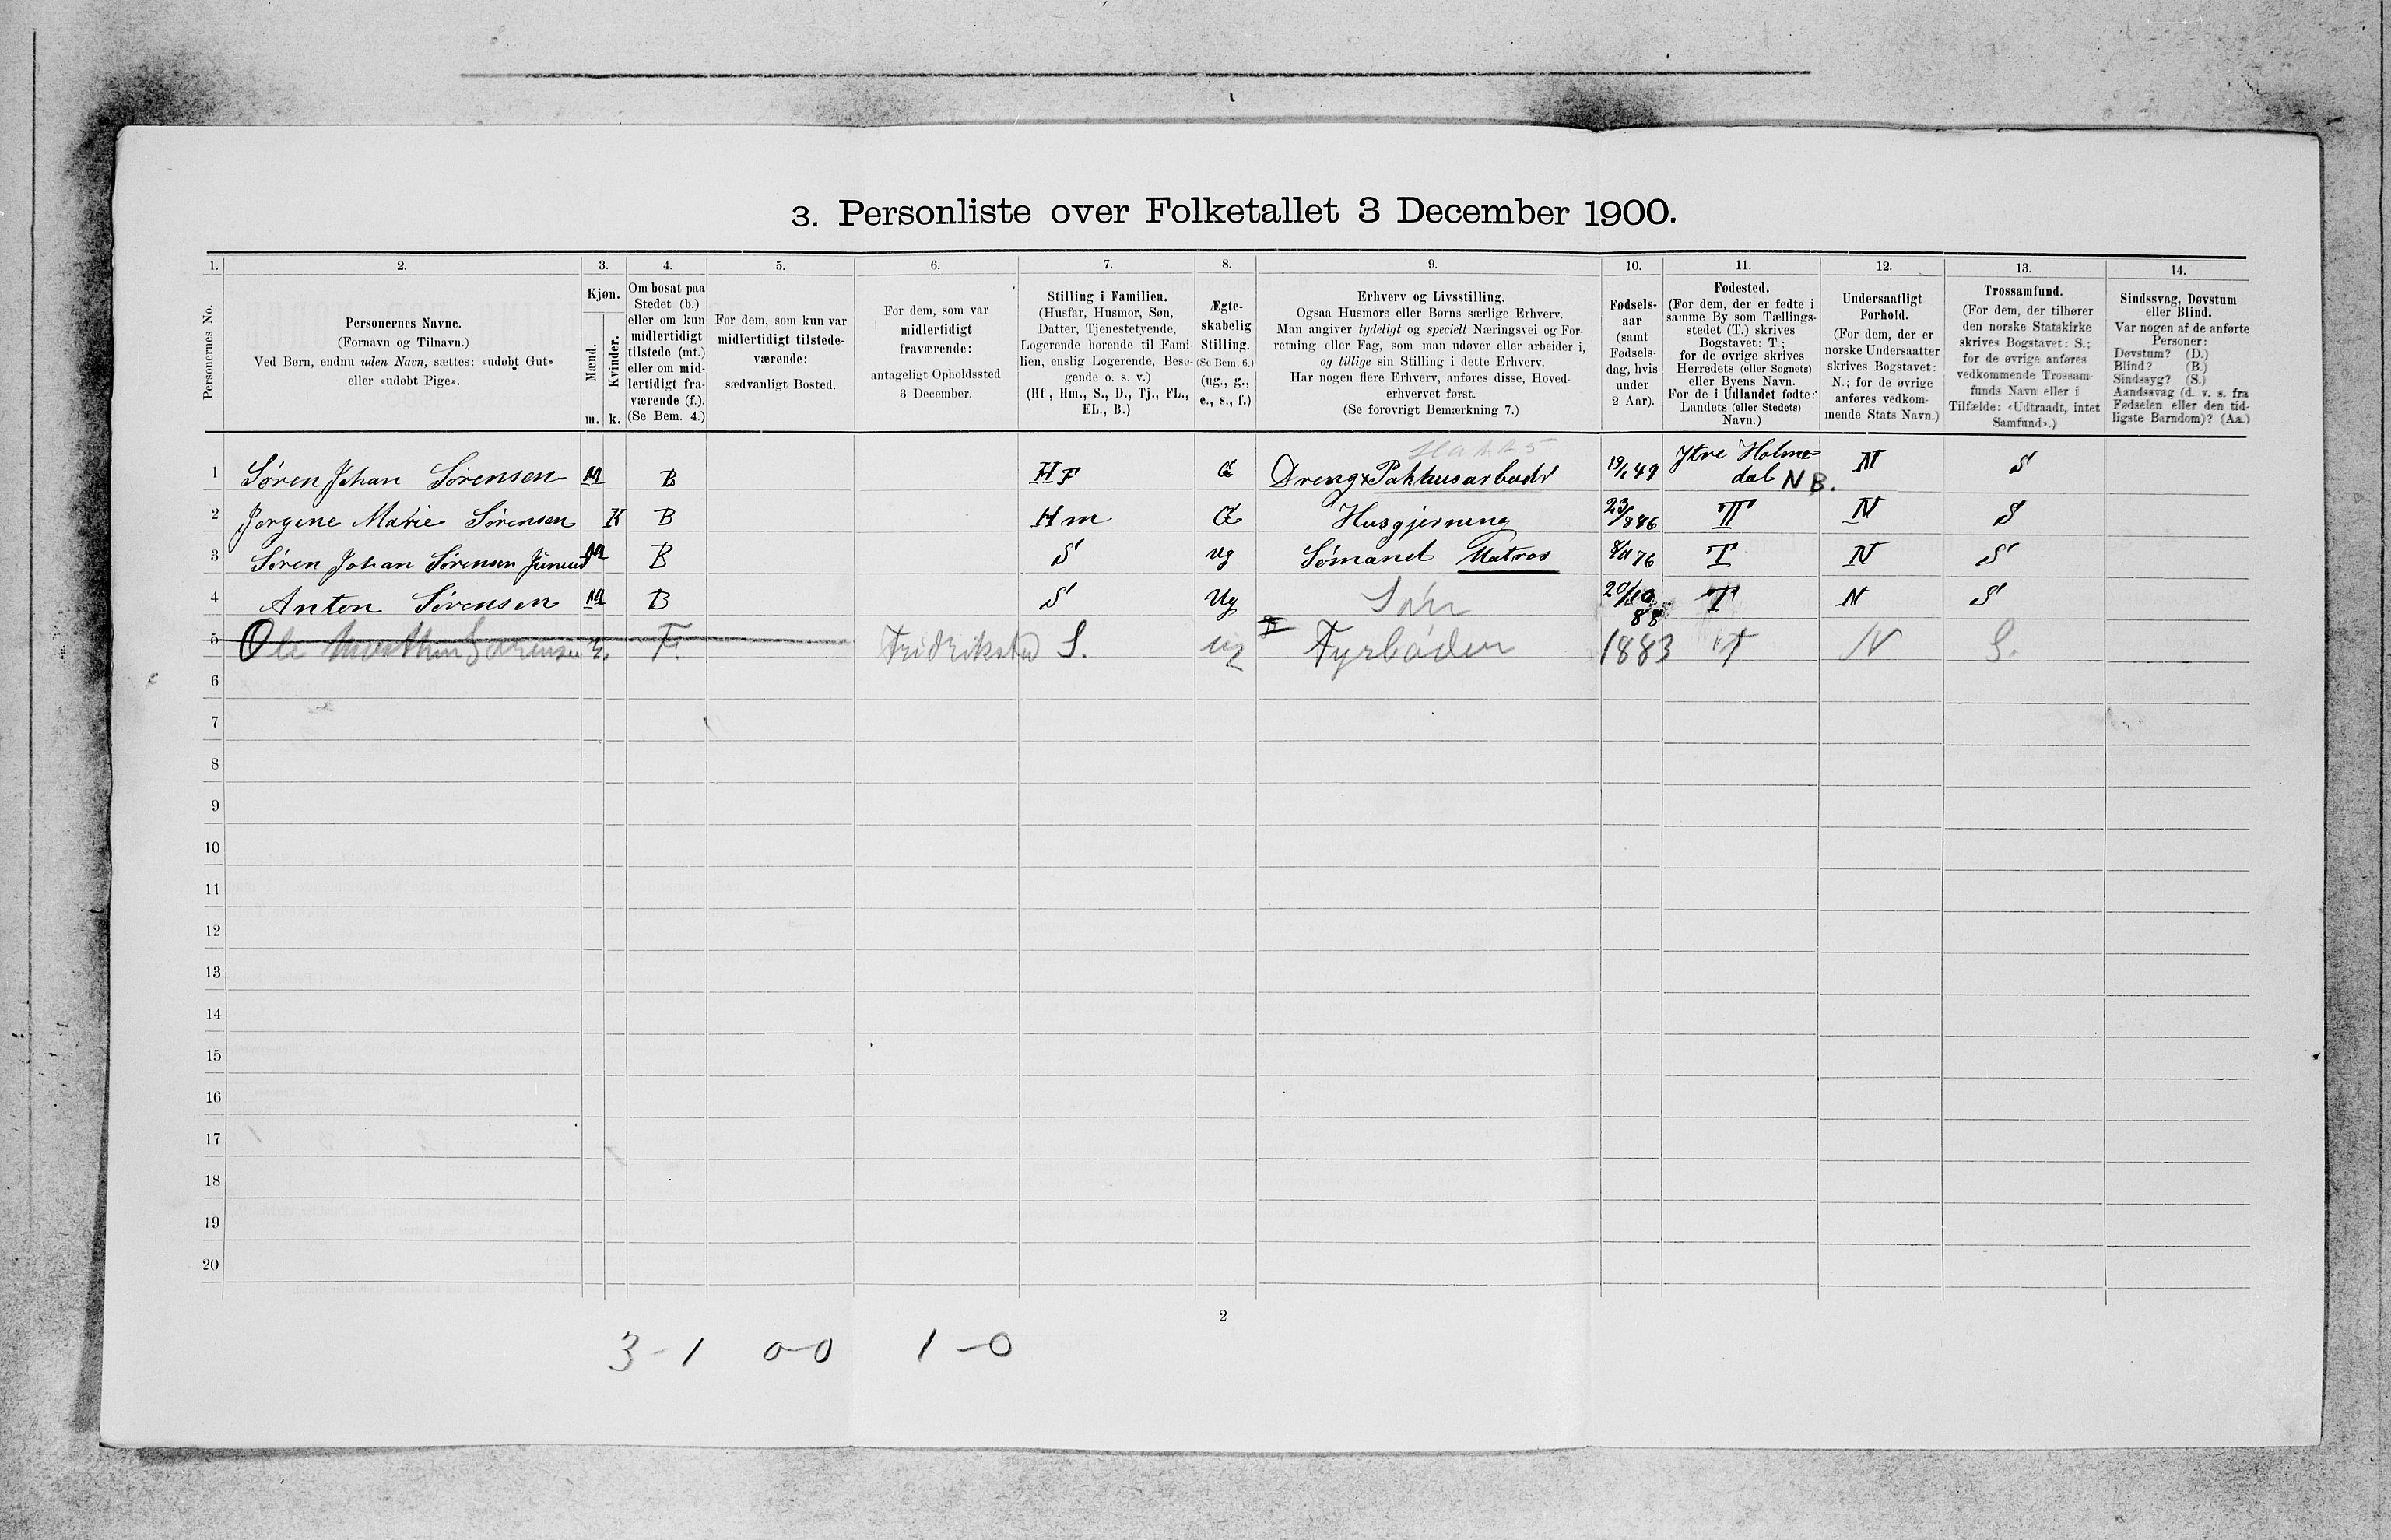 3. Personliste over Folketallet 3 December 1900.
1. 2. 3. 4. 5. 6. 7. 8. 9. 10. 11. 12. 13. 14.
Personernes No.
Personernes Navne.
(Fornavn og Tilnavn.)
Ved Børn, endnu uden Navn, sættes: «udøbt Gut»
eller «udøbt Pige».
Kjøn.
Mænd.
Kvinder.
m. k.
Om bosat paa
Stedet (b.)
eller om kun
midlertidigt
tilstede (mt.)
eller om mid-
lertidigt fra-
værende (f.).
(Se Bem. 4.)
For dem, som kun var
midlertidigt tilstede-
værende:
sædvanligt Bosted.
For dem, som var
midlertidigt
fraværende:
antageligt Opholdssted
3 December.
Stilling i Familien.
(Husfar, Husmor, Søn,
Datter, Tjenestetyende,
Logerende hørende til Fami-
lien, enslig Logerende, Besø-
gende o. s. v.)
(Hf., Hm., S., D., Tj., FL.,
EL., B.)
Ægte-
skabelig
Stilling.
(Se Bem. 6.)
(ug., g.,
e., s., f.)
Erhverv og Livsstilling.
Ogsaa Husmors eller Børns særlige Erhverv.
Man angiver tydeligt og specielt Næringsvei og For-
retning eller Fag, som man udøver eller arbeider i,
og tillige sin Stilling i dette Erhverv.
Har nogen flere Erhverv, anføres disse, Hoved-
erhvervet først.
(Se forøvrigt Bemærkning 7.)
Fødsels-
aar
(samt
Fødsels-
dag, hvis
under
2 Aar).
Fødested.
(For dem, der er fødte i
samme By som Tællings-
stedet (T.) skrives
Bogstavet: T.;
for de øvrige skrives
Herredets (eller Sognets)
eller Byens Navn.
For de i Udlandet fødte:
Landets (eller Stedets)
Navn.)
Undersaatligt
Forhold.
(For dem, der er
norske Undersaatter
skrives Bogstavet:
N.; for de øvrige
anføres vedkom-
mende Stats Navn.)
Trossamfund.
(For dem, der tilhører
den norske Statskirke
skrives Bogstavet: S.;
for de øvrige anføres
vedkommende Trossam-
funds Navn eller i
Tilfælde: «Udtraadt, intet
Samfund».)
Sindssvag, Døvstum
eller Blind.
Var nogen af de anførte
Personer:
Døvstum? (D.)
Blind? (B.)
Sindssyg? (S.)
Aandssvag (d. v. s. fra
Fødselen eller den tid-
ligste Barndom)? (Aa.)
1 Søren Johan Sørensen M B HF G Dreng x Pakhusarbeidr 19/1 49 Ytre Holme=
dal NB. N S
2 Jørgine Marie Sørensen K B Hm G Husgjerning 23/8 46 T N S
3 Søren Johan Sørensen M B S ug Sømand Matros 8/11 76 T N S
4 Anton Sørensen M B S Ug Søn 20/10 88 T N S
5 Ole Sørensen F. Fridrikstad S. ug Fyrbøder 1883 T N S.
6
7
8
9
10
11
12
13
14
15
16
17
18
19
20
2
3-1 0-0 1-0